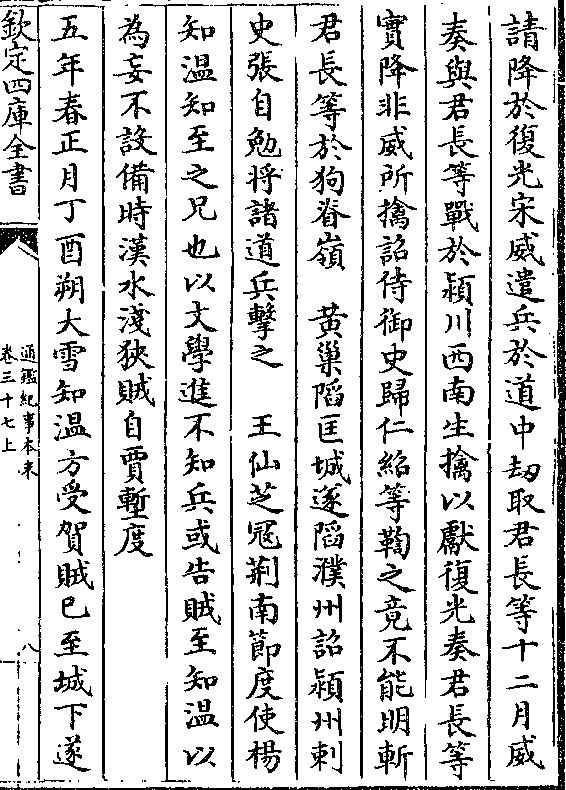 請降於復光宋威遣兵於道中劫取君長等十二月威
奏與君長等戰於潁川西南生擒以獻復光奏君長等
實降非威所擒詔侍御史歸仁紹等鞫之竟不能明斬
君長等於狗脊嶺　黄巢䧟匡城遂䧟濮州詔潁州刺
史張自勉將諸道兵擊之　王仙芝冦荆南節度使楊
知溫知至之兄也以文學進不知兵或告賊至知溫以
為妄不設備時漢水淺狹賊自賈塹度
五年春正月丁酉朔大雪知溫方受賀賊已至城下遂
欽定四庫全書
通鑑紀事本末
卷三十七上
八